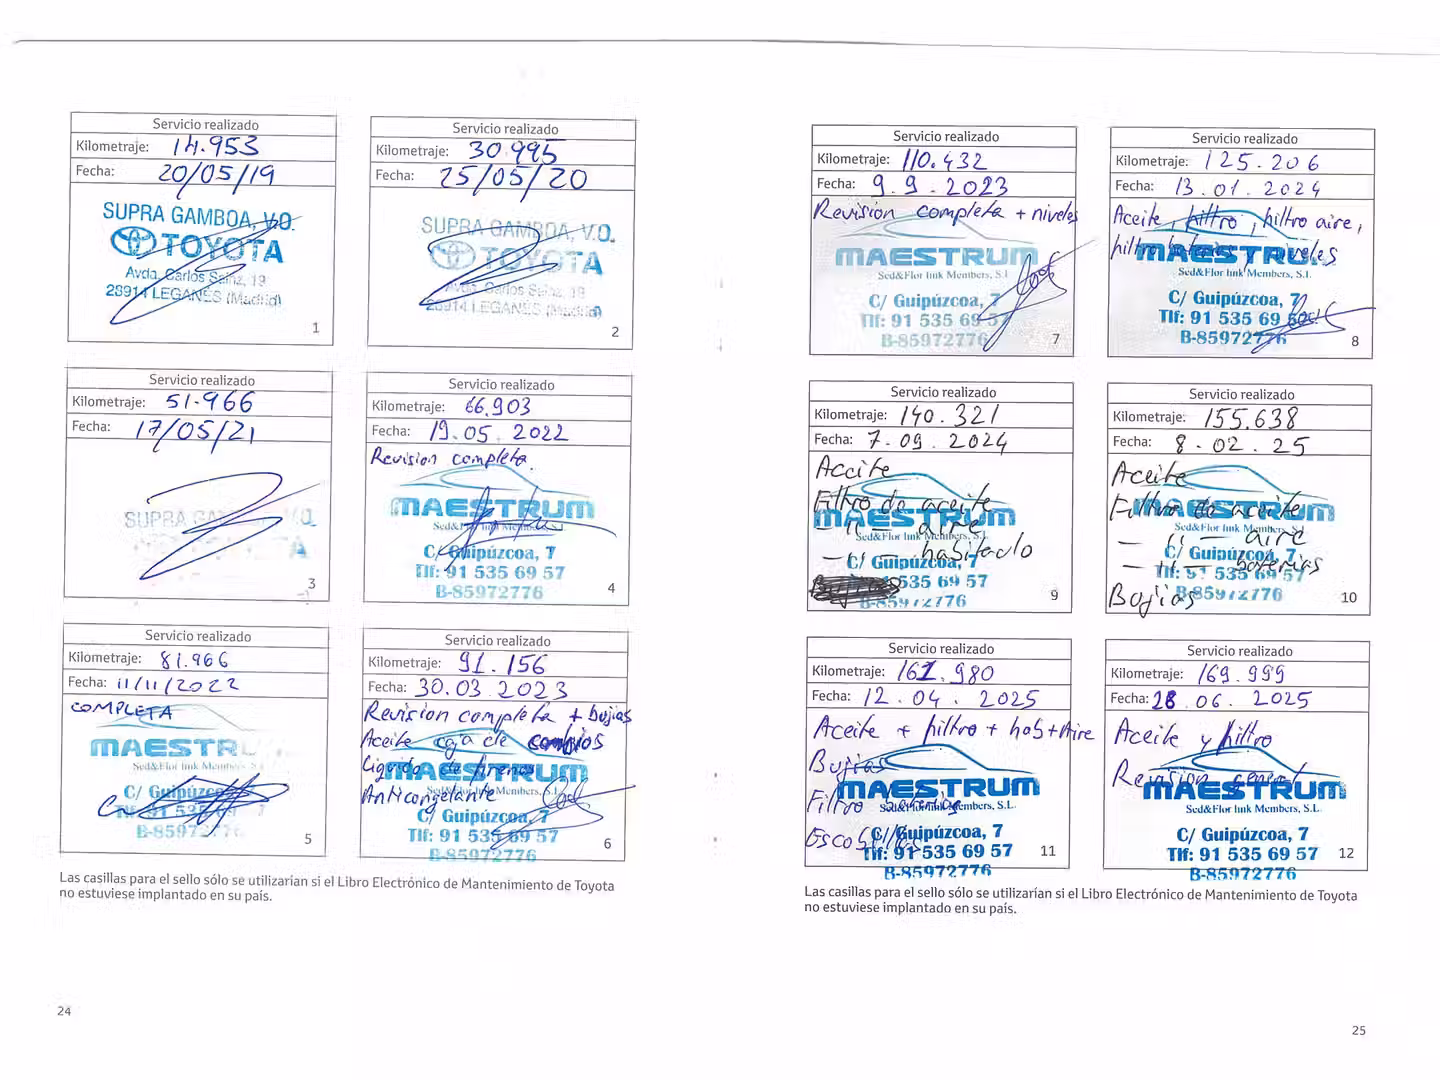 Servicio realizado
Kilometraje: 14.953
Fecha: 20/05/19
SUPRA GAMBOA, V.O.
TOYOTA
Avda. Carlos Sainz, 19
28914 LEGANES (Madrid)
1
Servicio realizado
Kilometraje: 30.995
Fecha: 25/05/20
SUPRA GAMBOA, V.O.
TOYOTA
Avda. Carlos Sainz, 19
28914 LEGANES (Madrid)
2
Servicio realizado
Kilometraje: 51.966
Fecha: 17/05/21
SUPRA
3
Servicio realizado
Kilometraje: 66.903
Fecha: 19.05.2022
Revision completa.
MAESTRUM
Sed&Flor link Members, S.L.
C/ Guipúzcoa, 7
Tlf: 91 535 69 57
B-85972776
4
Servicio realizado
Kilometraje: 81.966
Fecha: 11/11/2022
COMPLETA
MAESTRUM
Sed&Flor link Members, S.L.
C/ Guipúzcoa
Tlf: 91 535
B-85972776
5
Servicio realizado
Kilometraje: 91.156
Fecha: 30.03.2023
Revision completa + bujias
Aceite caja de cambios
Liquido de frenos
Anticongelante
MAESTRUM
Members, S.L.
C/ Guipúzcoa, 7
Tlf: 91 535 69 57
B-85972776
6
Las casillas para el sello sólo se utilizarían si el Libro Electrónico de Mantenimiento de Toyota
no estuviese implantado en su país.
24
Servicio realizado
Kilometraje: 110.432
Fecha: 9.9.2023
Revision completa + niveles
MAESTRUM
Sed&Flor link Members, S.L.
C/ Guipúzcoa, 7
Tlf: 91 535 69 57
B-85972776
7
Servicio realizado
Kilometraje: 125.206
Fecha: 13.01.2024
Aceite, filtro, filtro aire,
filtro niveles
MAESTRUM
Sed&Flor link Members, S.L.
C/ Guipúzcoa, 7
Tlf: 91 535 69
B-85972776
8
Servicio realizado
Kilometraje: 140.321
Fecha: 7.09.2024
Aceite
Filtro de aceite
- 11 - aire
- 11 - habitaclo
MAESTRUM
Sed&Flor link Members, S.L.
C/ Guipúzcoa, 7
535 69 57
B-85972776
9
Servicio realizado
Kilometraje: 155.638
Fecha: 8.02.25
Aceite
Filtro de aceite
- 11 - aire
- 11 - baterias
Bujias
MAESTRUM
Sed&Flor link Members, S.L.
C/ Guipúzcoa, 7
Tlf: 91 535 69 57
B-85972776
10
Servicio realizado
Kilometraje: 161.980
Fecha: 12.04.2025
Aceite + filtro + hab + Aire
Bujias
Filtro baterias
MAESTRUM
Sed&Flor link Members, S.L.
C/ Guipúzcoa, 7
Tlf: 91 535 69 57
B-85972776
11
Servicio realizado
Kilometraje: 169.999
Fecha: 28.06.2025
Aceite y filtro
Revision general
MAESTRUM
Sed&Flor link Members, S.L.
C/ Guipúzcoa, 7
Tlf: 91 535 69 57
B-85972776
12
Las casillas para el sello sólo se utilizarían si el Libro Electrónico de Mantenimiento de Toyota
no estuviese implantado en su país.
25